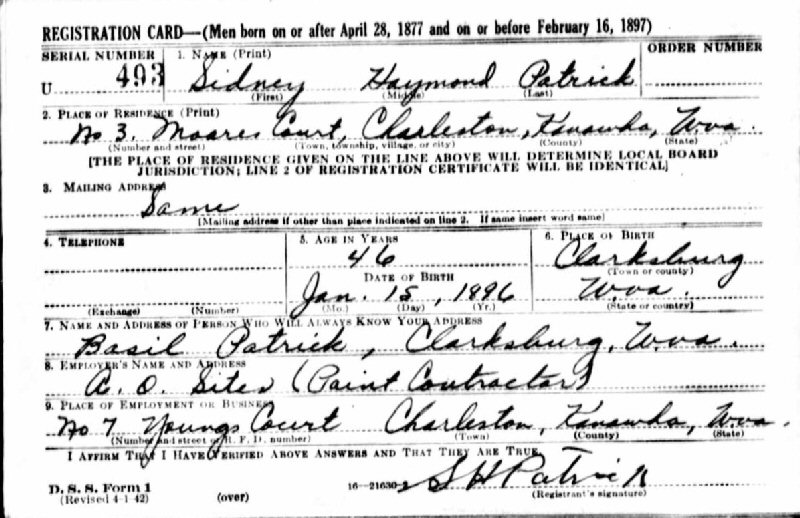 REGISTRATION CARD—(Men born on or after April 28, 1877 and on or before February 16, 1897)
SERIAL NUMBER 1. NAME (Print) ORDER NUMBER
U 493 Sidney Haymond Patrick
(First) (Middle) (Last)
2. PLACE OF RESIDENCE (Print)
No 3. Moores Court, Charleston, Kanawha, W.va.
(Number and street) (Town, township, village, or city) (County) (State)
[THE PLACE OF RESIDENCE GIVEN ON THE LINE ABOVE WILL DETERMINE LOCAL BOARD
JURISDICTION; LINE 2 OF REGISTRATION CERTIFICATE WILL BE IDENTICAL]
3. MAILING ADDRESS
Same
[Mailing address if other than place indicated on line 2. If same insert word same]
4. TELEPHONE 5. AGE IN YEARS 6. PLACE OF BIRTH
46 Clarksburg
DATE OF BIRTH (Town or county)
Jan. 15, 1896 W.va.
(Exchange) (Number) (Mo.) (Day) (Yr.) (State or country)
7. NAME AND ADDRESS OF PERSON WHO WILL ALWAYS KNOW YOUR ADDRESS
Basil Patrick, Clarksburg, W.va.
8. EMPLOYER'S NAME AND ADDRESS
A. O. Sites (Paint Contractor)
9. PLACE OF EMPLOYMENT OR BUSINESS
No 7 Youngs Court Charleston, Kanawha, W.va.
(Number and street or R. F. D. number) (Town) (County) (State)
I AFFIRM THAT I HAVE VERIFIED ABOVE ANSWERS AND THAT THEY ARE TRUE.
S H Patrick
D. S. S. Form 1 16—21630-2 (Registrant's signature)
(Revised 4-1-42) (over)